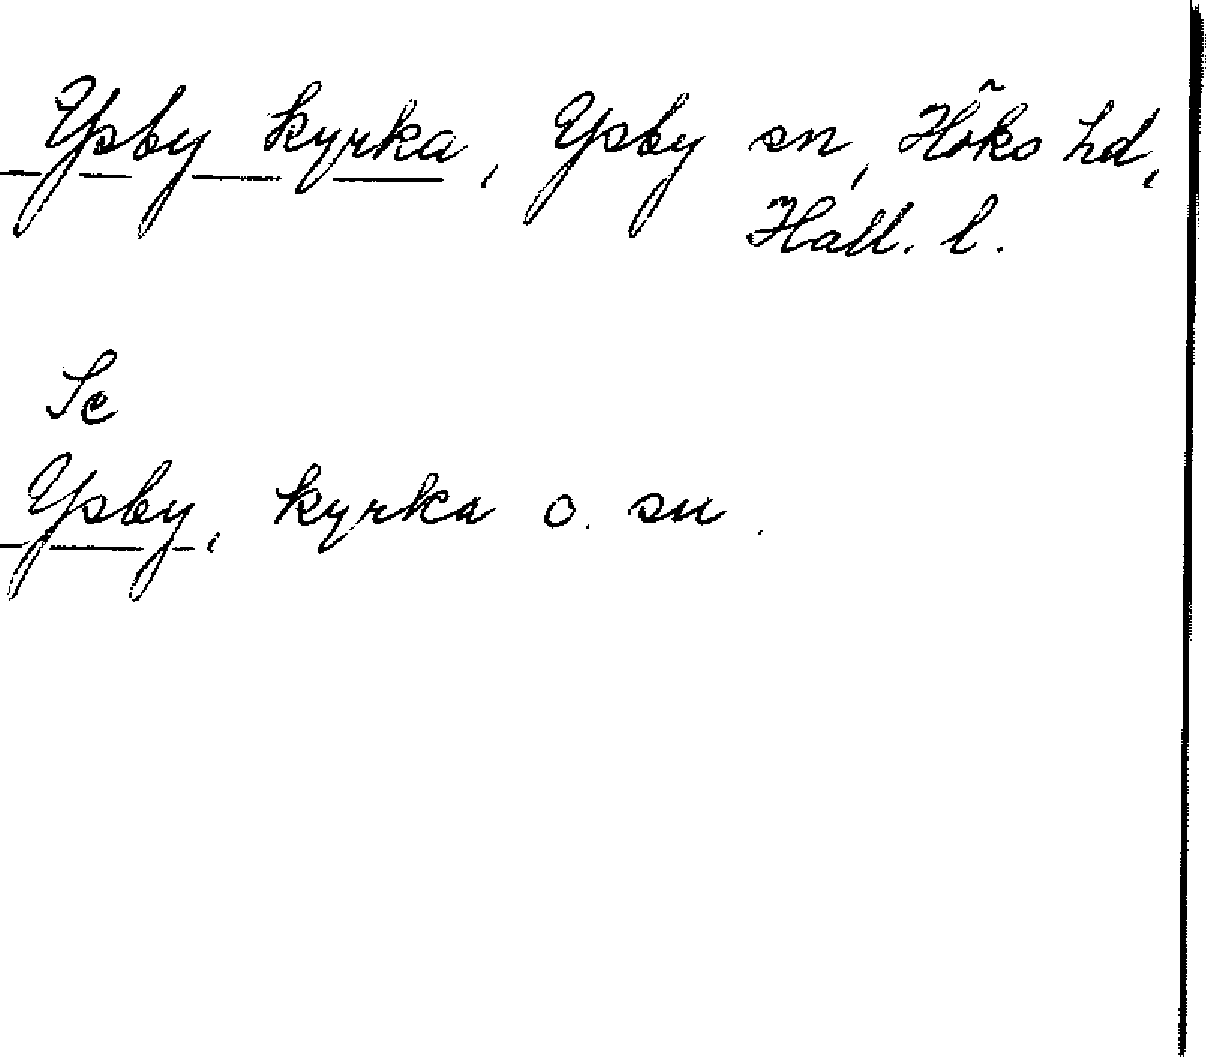 Ysby kyrka, Ysby sn, Höks hd,
Hall. l.
Se
Ysby, kyrka o. sn.